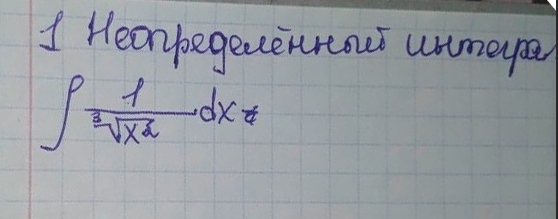 1 Неопределённый интегра
∫ 1/∛x² dx